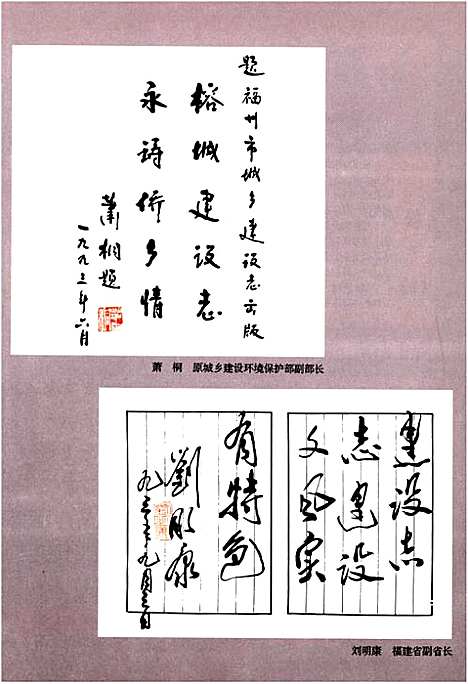 题福州市城乡建设志出版
榕城建设志
永铸侨乡情
萧桐题
一九九三年六月
萧 桐 原城乡建设环境保护部副部长
建设志
志建设
文风实
有特色
劉明康
九三年九月三日
刘明康 福建省副省长